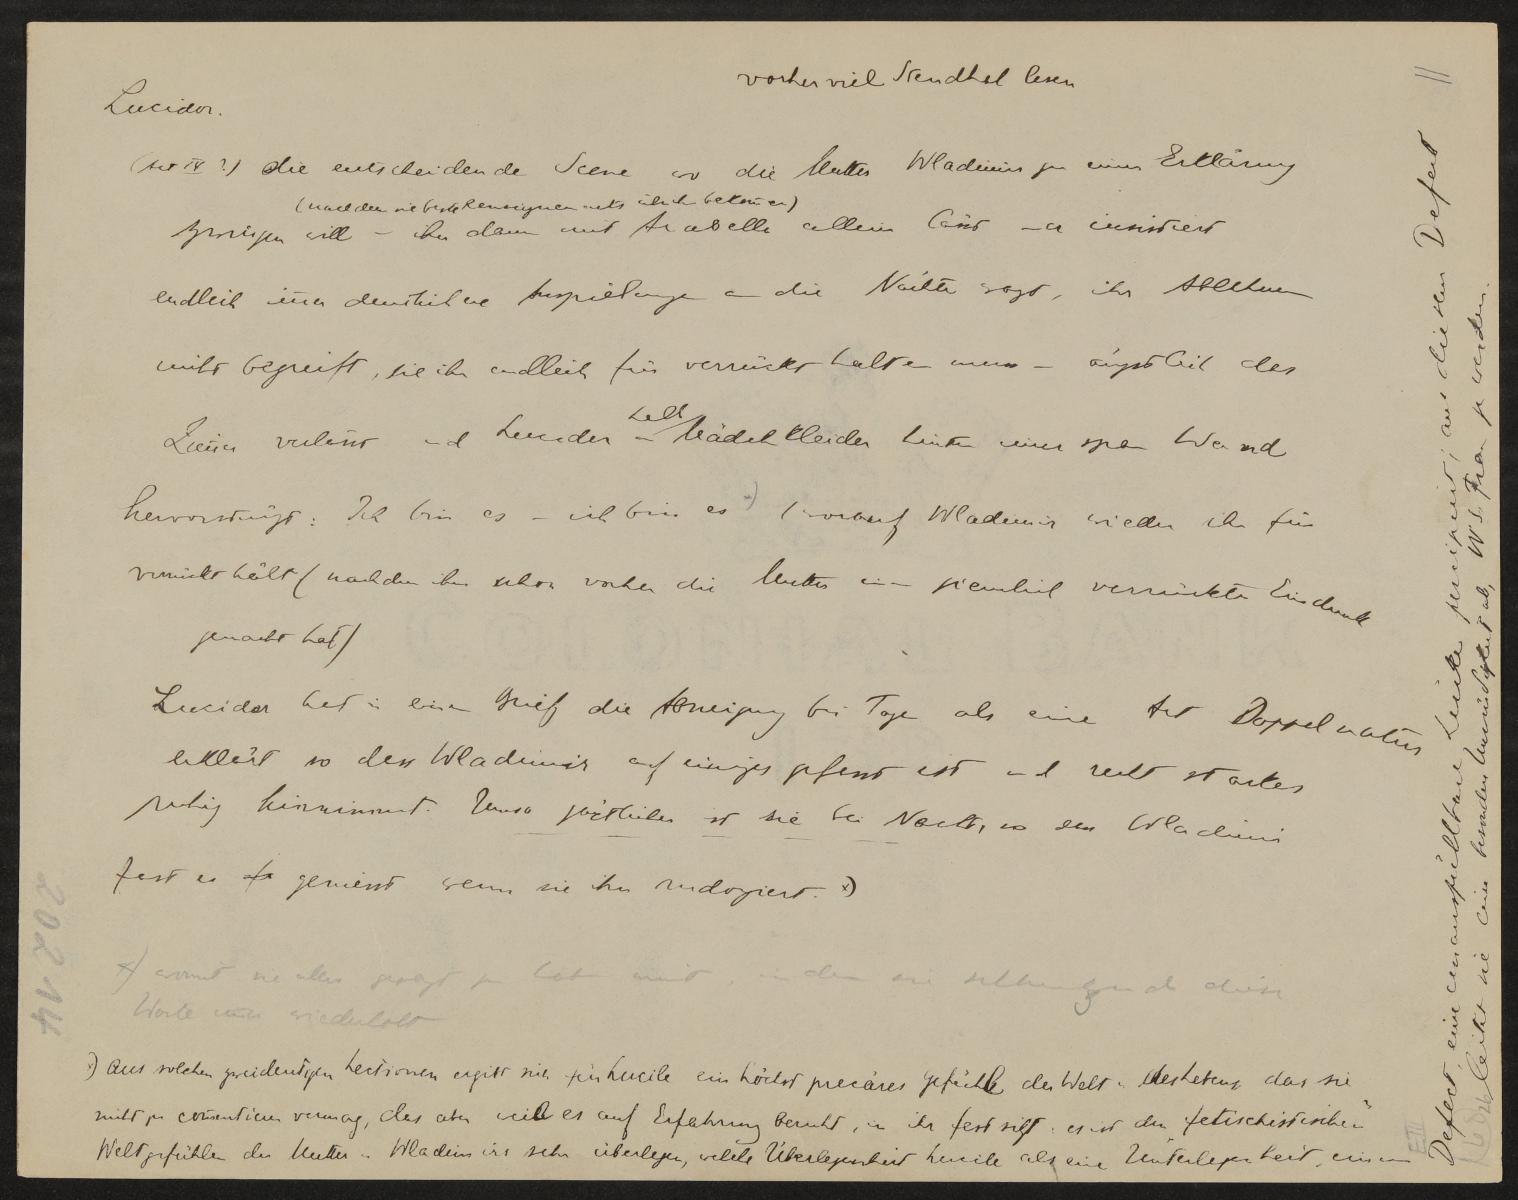 vorher viel Stendhal lesen
Lucidor.
(Act IV ?) die entscheidende Scene wo die Mutter Wladimir zu einer Erklärung
(nachdem sie
zwingen will – ihn dann mit Arabella allein lässt – er insistiert
endlich immer deutlichere Anspielungen an die Nächte wagt, ihr Ablehnen
nicht begreift, sie ihn endlich für verrückt halten muss – ängstlich das
Zimmer verlässt und Lucidor in Mädchenkleider hinter einer span Wand
halb
hervorsteigt: Ich bin es – ich bin es x) (worauf Wladimir wieder ihn für
verrückt hält (nachdem ihm schon vorher die Mutter einen ziemlich verrückten Eindruck
gemacht hat)
Lucidor hat in einem Brief die Abneigung bei Tage als eine Art Doppelnatur
erklärt so dass Wladimir auf einiges gefasst ist und recht starkes
ruhig hinnimmt. Umso zärtlicher ist sie bei Nacht, so dass Wladimir
fast es genießt wenn sie ihn rudoyiert. x)
x) womit sie alles gesagt zu haben meint, indem sie schluchzend diese
Worte immer wiederholt
x) Aus solchen zweideutigen Lectionen ergibt sich für Lucile ein höchst precäres Gefühl der Welt u. das sie
nicht zu vermag, das aber weil es auf Erfahrung beruht, in ihr fest sitzt: es ist den "fetischistischen"
Weltgefühlen der Mutter u. Wladimirs sehr überlegen, welche Überlegenheit Lucile als eine Unterlegenheit, einen
Defect, eine unausfüllbare Lücke percipiert; aus diesem Defect
leitet sie eine besondere Unwürdigkeit ab, Wl.s Frau zu werden.
II
202 14
EIII